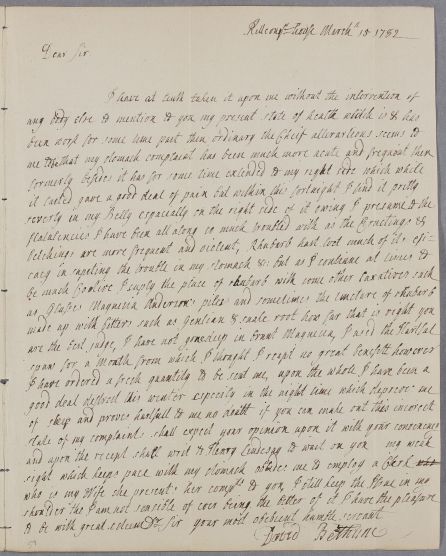 Kilconqr. house March 15 1782
Dear Sir
I have at lenth taken it upon me without the intervention of
any body else to mention to you my present state of health which is & has
been worse for some time past then ordinary the Cheif alterations seems to
me that my stomach complaint has been much more acute and frequent then
formerly besides it has for some time extended to my right side which while
it lasted gave a good deal of pain but within this fortnight I find it pretty
severly in my Belly especially on the right side of it owing I presume to the
flatulencies I have been all along so much troubled with as the Eructings &
belchings are more frequent and violent, Rhubarb hast lost much of its effi-
cacy in expeling the trouble in my stomach &c: but as I continue at times to
be much Costive I suply the place of rhubarb with some other laxatives such
as Glasses Magnecia Andersons piles and sometimes the tincture of rhubarb
made up with bitters such as Gentean & snake root how far that is right you
are the best judge, I have not gone deep in burnt Magnecia, I used the
spaw for a Month from which I thought I reapt no great benefitt however
I have ordered a fresh quantity to be sent me, upon the whole I have been a
good deal distrest this winter especialy in the night time which deprives me
of sleep and proves hurtfull to me no doubt if you can make out this incorect
tale of my complaints shall expect your opinion upon it with your conveniency
and upon the receipt shall writ to Henry Lindesay to wait on you my weak
sight which keeps pace with my stomach obliges me to employ a Clerk
who is my Wife she presents her compts to you, I still keep the Issue in my
shoulder tho I am not sensible of ever being the better of it I have the pleasure
to be with great esteem Dr Sir your most obedient humble servant
David Bethune